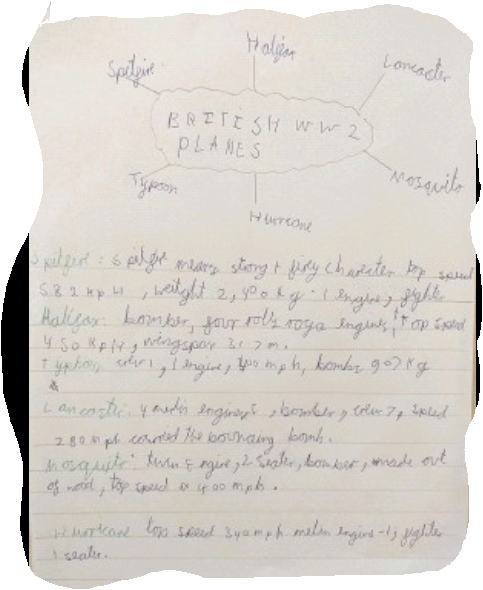 Halifax
Spitfire
Lancaster
BRITISH WW2
PLANES
Typoon
Mosquito
Hurricane
Spitfire: spitfire means strong + firey charecter top speed
582 kpH, weight 2,400 kg 1 engine, fighter
Halifax: bomber, four rolls royce engines, top speed
450 KpH, wingspan 31.7 m.
Typhon: crew 1, 1 engine, 400 mph, bombs 907 Kg
Lancaster: 4 merlin engines, bomber, crew 7, speed
280 mph carried the bouncing bomb.
Mosquito: twin engine, 2 seater, bomber, made out
of wood, top speed 400 mph.
Hurricane top speed 340 mph merlin engine-1, fighter
1 seater.